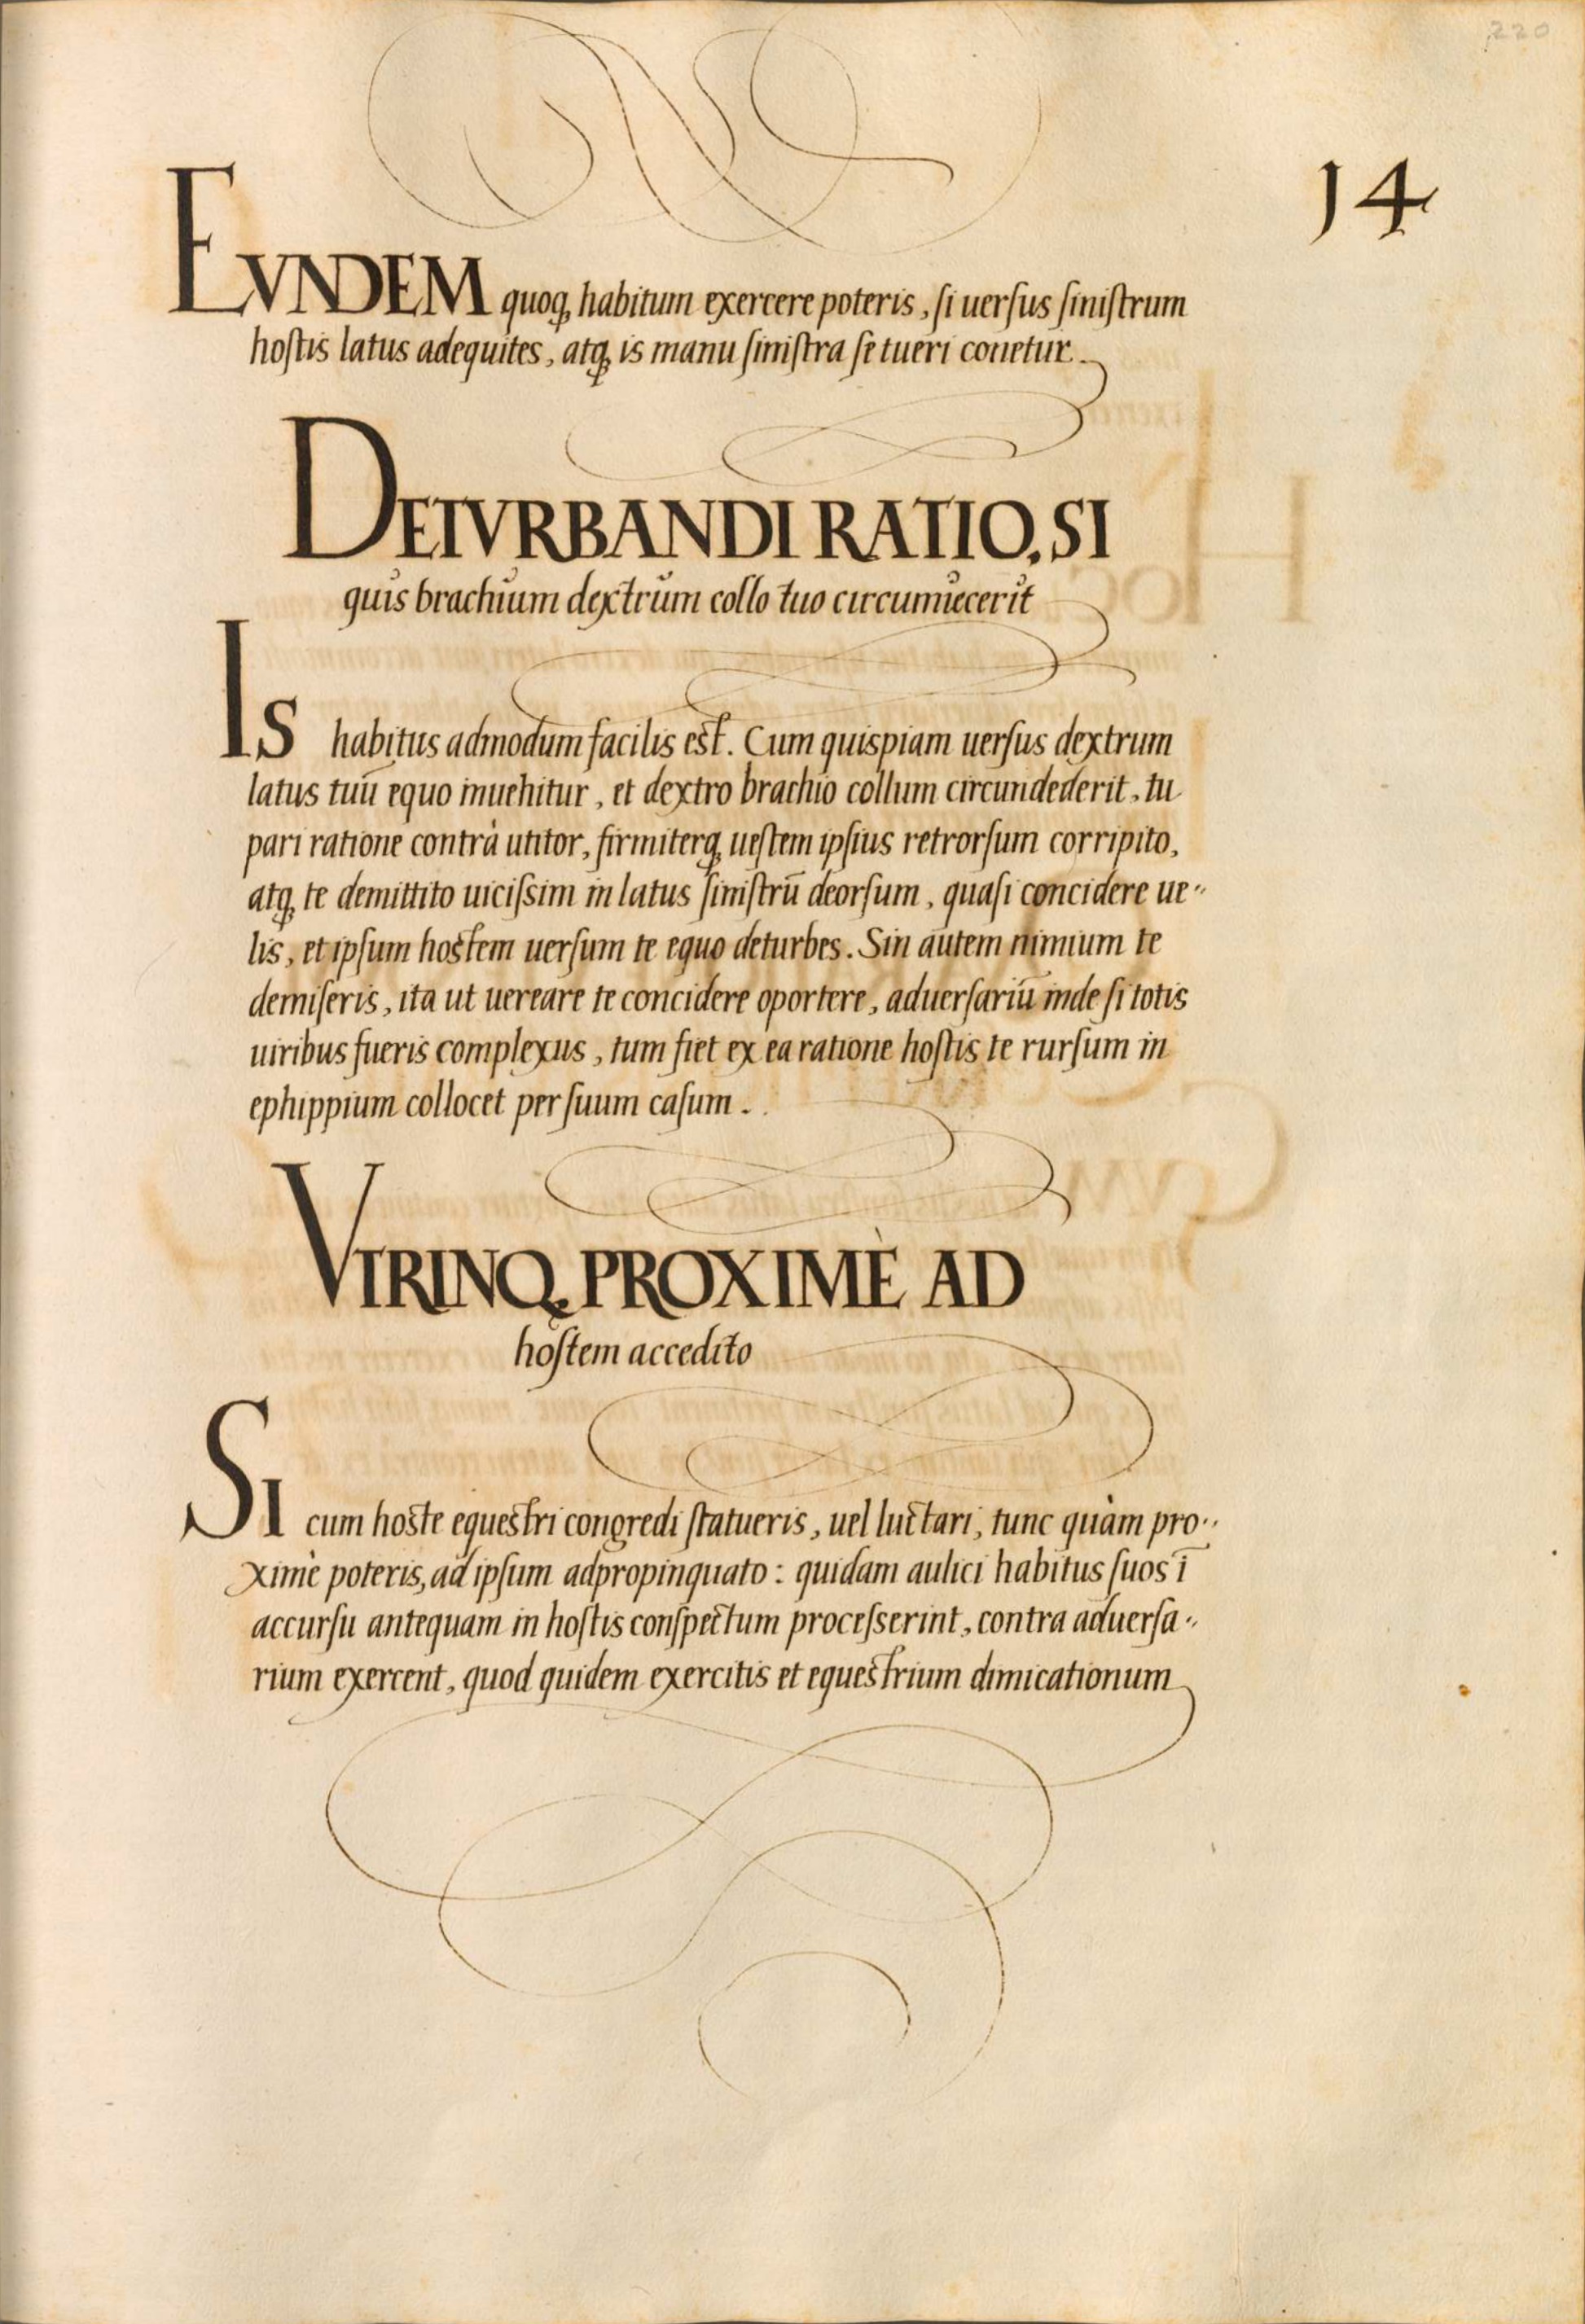 220
14
EVNDEM quoq; habitum exercere poteris, si uersus sinistrum
hostis latus adequites, atq; is manu sinistra se tueri conetur.
DETVRBANDI RATIO, SI
quis brachium dextrum collo tuo circumiecerit
IS habitus admodum facilis est. Cum quispiam uersus dextrum
latus tuū equo inuehitur, et dextro brachio collum circundederit, tu
pari ratione contrà utitor, firmiterq; uestem ipsius retrorsum corripito,
atq; te demittito uicissim in latus sinistrū deorsum, quasi concidere ue-
lis, et ipsum hostem uersum te equo deturbes. Sin autem nimium te
demiseris, ita ut uereare te concidere oportere, aduersariū inde si totis
uiribus fueris complexus, tum fiet ex ea ratione hostis te rursum in
ephippium collocet per suum casum.
VTRINQ; PROXIMÈ AD
hostem accedito
SI cum hoste equestri congredi statueris, uel luctari, tunc quàm pro-
ximè poteris, ad ipsum adpropinquato: quidam aulici habitus suos ī
accursu antequam in hostis conspectum processerint, contra aduersa-
rium exercent, quod quidem exercitis et equestrium dimicationum